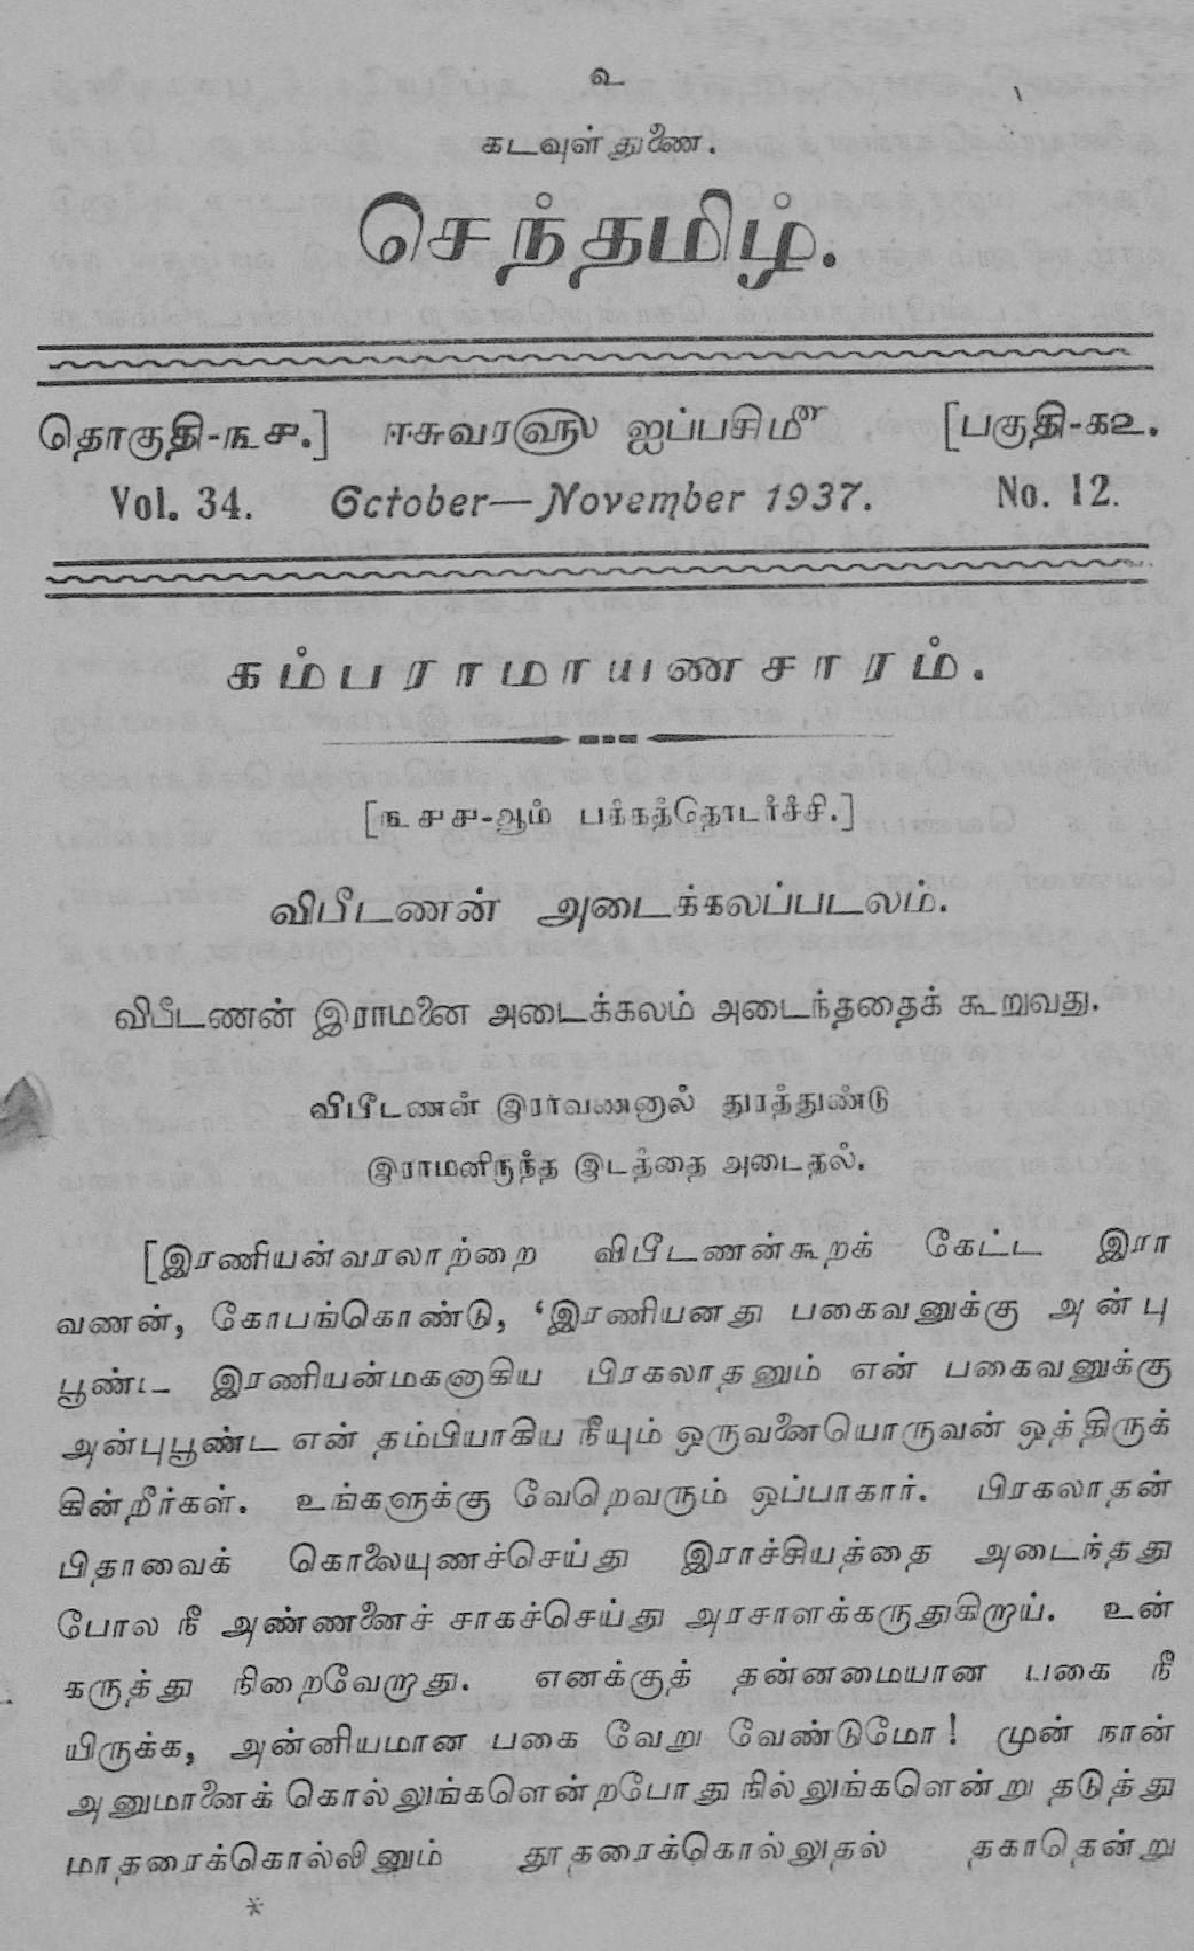 ௨
கடவுள் துணை.
செந்தமிழ்.
தொகுதி-௩௪.] ஈசுவரளு௵ ஐப்பசி௴ [பகுதி-௧௨.
Vol. 34. October—November 1937. No. 12.
கம்பராமாயணசாரம்.
[௩௪௪-ஆம் பக்கத்தொடர்ச்சி.]
விபீடணன் அடைக்கலப்படலம்.
விபீடணன் இராமனை அடைக்கலம் அடைந்ததைக் கூறுவது.
விபீடணன் இராவணனால் துரத்துண்டு
இராமனிருந்த இடத்தை அடைதல்.
[இரணியன்வரலாற்றை விபீடணன்கூறக் கேட்ட இரா
வணன், கோபங்கொண்டு, ‘இரணியனது பகைவனுக்கு அன்பு
பூண்ட இரணியன்மகனாகிய பிரகலாதனும் என் பகைவனுக்கு
அன்புபூண்ட என் தம்பியாகிய நீயும் ஒருவனையொருவன் ஒத்திருக்
கின்றீர்கள். உங்களுக்கு வேறெவரும் ஒப்பாகார். பிரகலாதன்
பிதாவைக் கொலையுணச்செய்து இராச்சியத்தை அடைந்தது
போல நீ அண்ணனைச் சாகச்செய்து அரசாளக்கருதுகிறாய். உன்
கருத்து நிறைவேறாது. எனக்குத் தன்னமையான பகை நீ
யிருக்க, அன்னியமான பகை வேறு வேண்டுமோ! முன் நான்
அனுமானைக் கொல்லுங்களென்றபோது நில்லுங்களென்று தடுத்து
மாதரைக்கொல்லினும் தூதரைக்கொல்லுதல் தகாதென்று
*